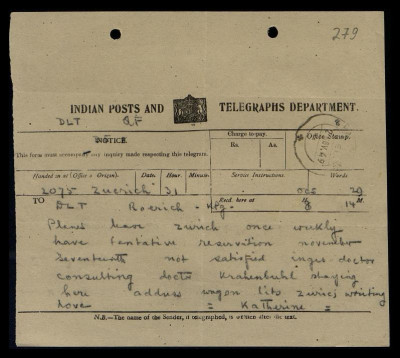 279
INDIAN POSTS AND TELEGRAPHS DEPARTMENT.
DLT
NOTICE
This form must accompany any inquiry made respecting this telegram.
Charge to pay.
Rs. As.
Office Stamp.
Handed in at (Office of Origin). Date. Hour. Minute. Service Instructions. Words
2075 Zuerich 31 29
TO
Recd. here at 14
DLT Roerich
Planes leave zurich once weekly
have tentative reservation november
seventeenth not satisfied inges doctor
consulting docto Krahenbuhl staying
here address wagon lits zurich writing
love = Katherine =
N.B.—The name of the Sender, if telegraphed, is written after the text.